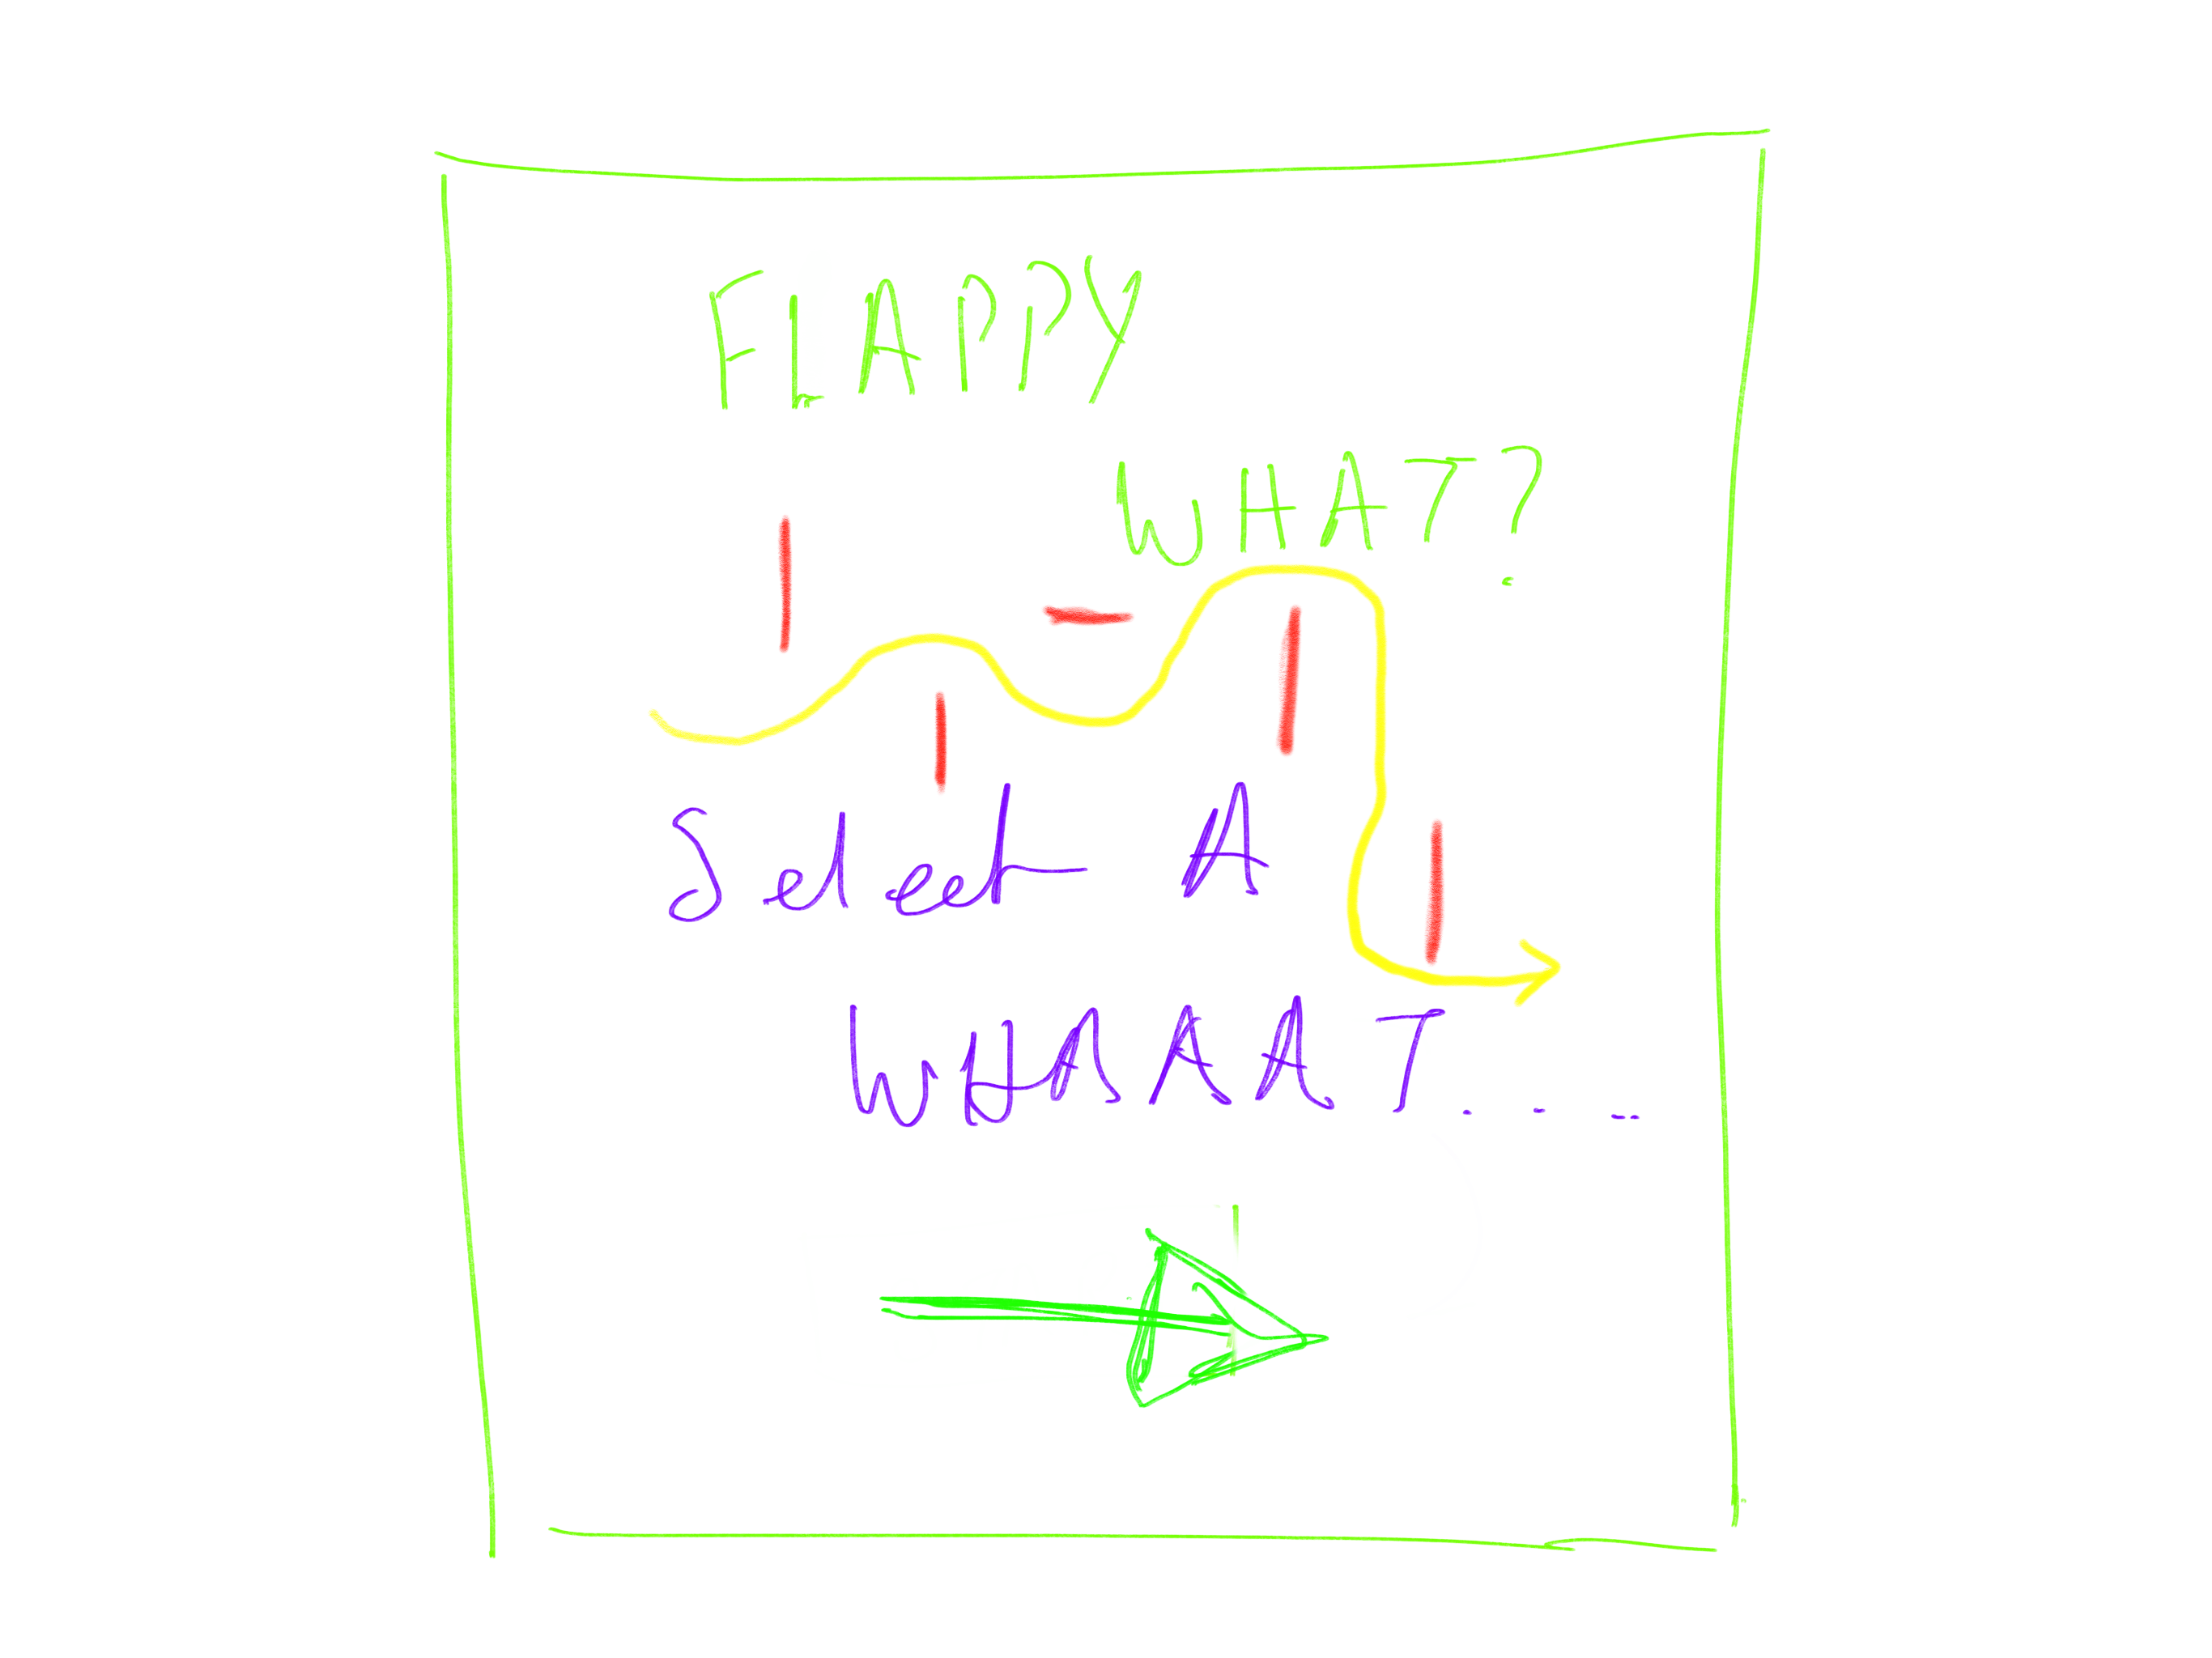 FLAPPY
WHAT?
Select A
WHAAAT....